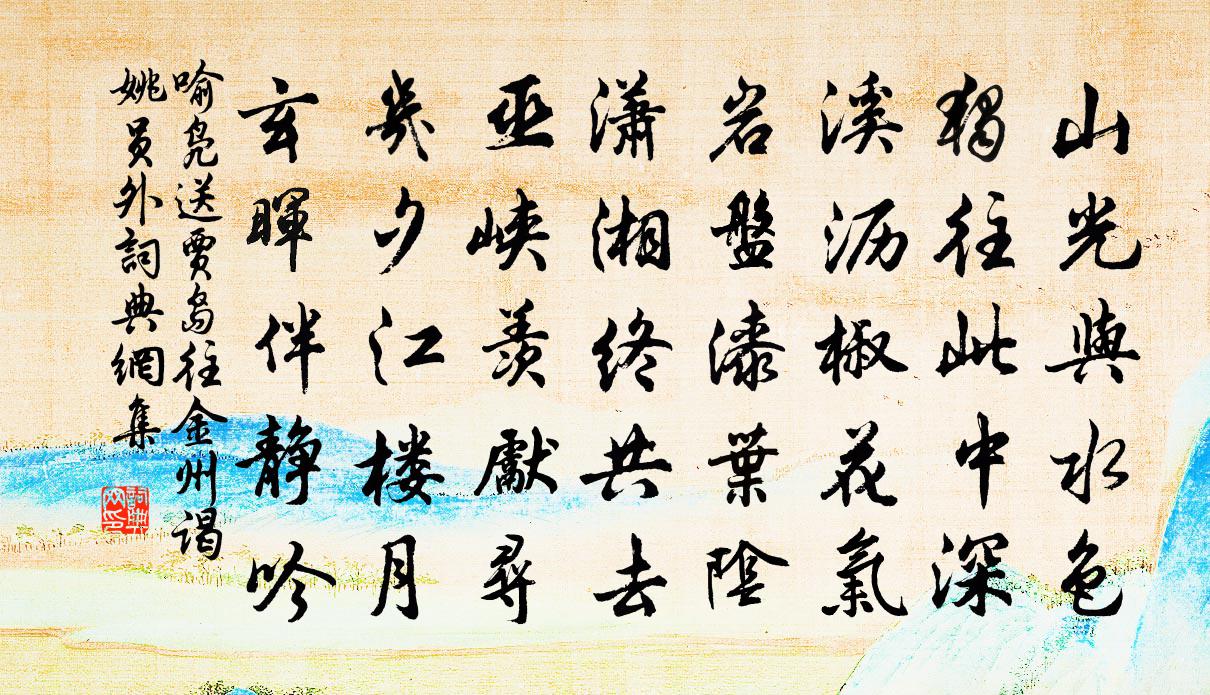 山光與水色
獨往此中深
溪沥椒花氣
岩盤漆葉陰
瀟湘終共去
巫峽羨獻尋
幾夕江楼月
玄暉伴静吟
喻凫送贾岛往金州谒
姚員外詞典網集
詞典网印